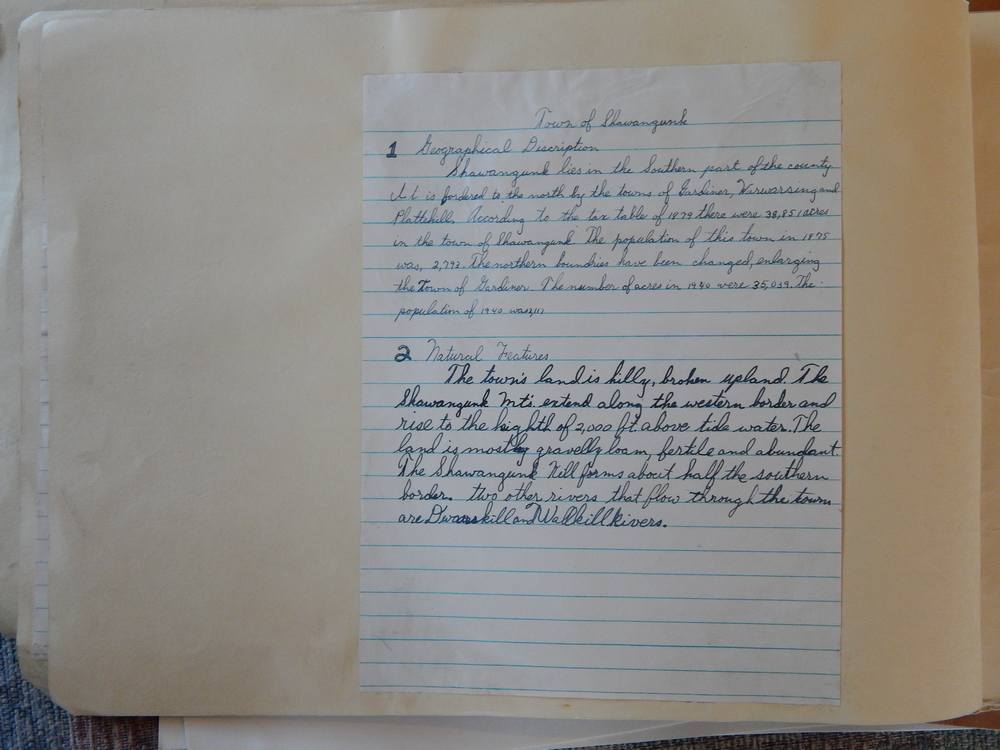 Town of Shawangunk
1 Geographical Description
Shawangunk lies in the Southern part of the county
It is fordered to the north by the towns of Gardiner, Warwarsing and
Plattekill. According to the tax table of 1879 there were 38,851 acres
in the town of Shawangunk The population of this town in 1875
was, 2,792. The northern boundries have been changed, enlarging
the Town of Gardiner. The number of acres in 1940 were 35,039. The
population of 1940 was
2 Natural Features
The town's land is hilly, broken upland. The
Shawangunk Mt's. extend along the western border and
rise to the highth of 2,000 ft. above tide water. The
land is mostly gravelly loam, fertile and abundant.
The Shawangunk Kill forms about half the southern
border. two other rivers that flow through the town
are Dwarskill and Wallkill Rivers.